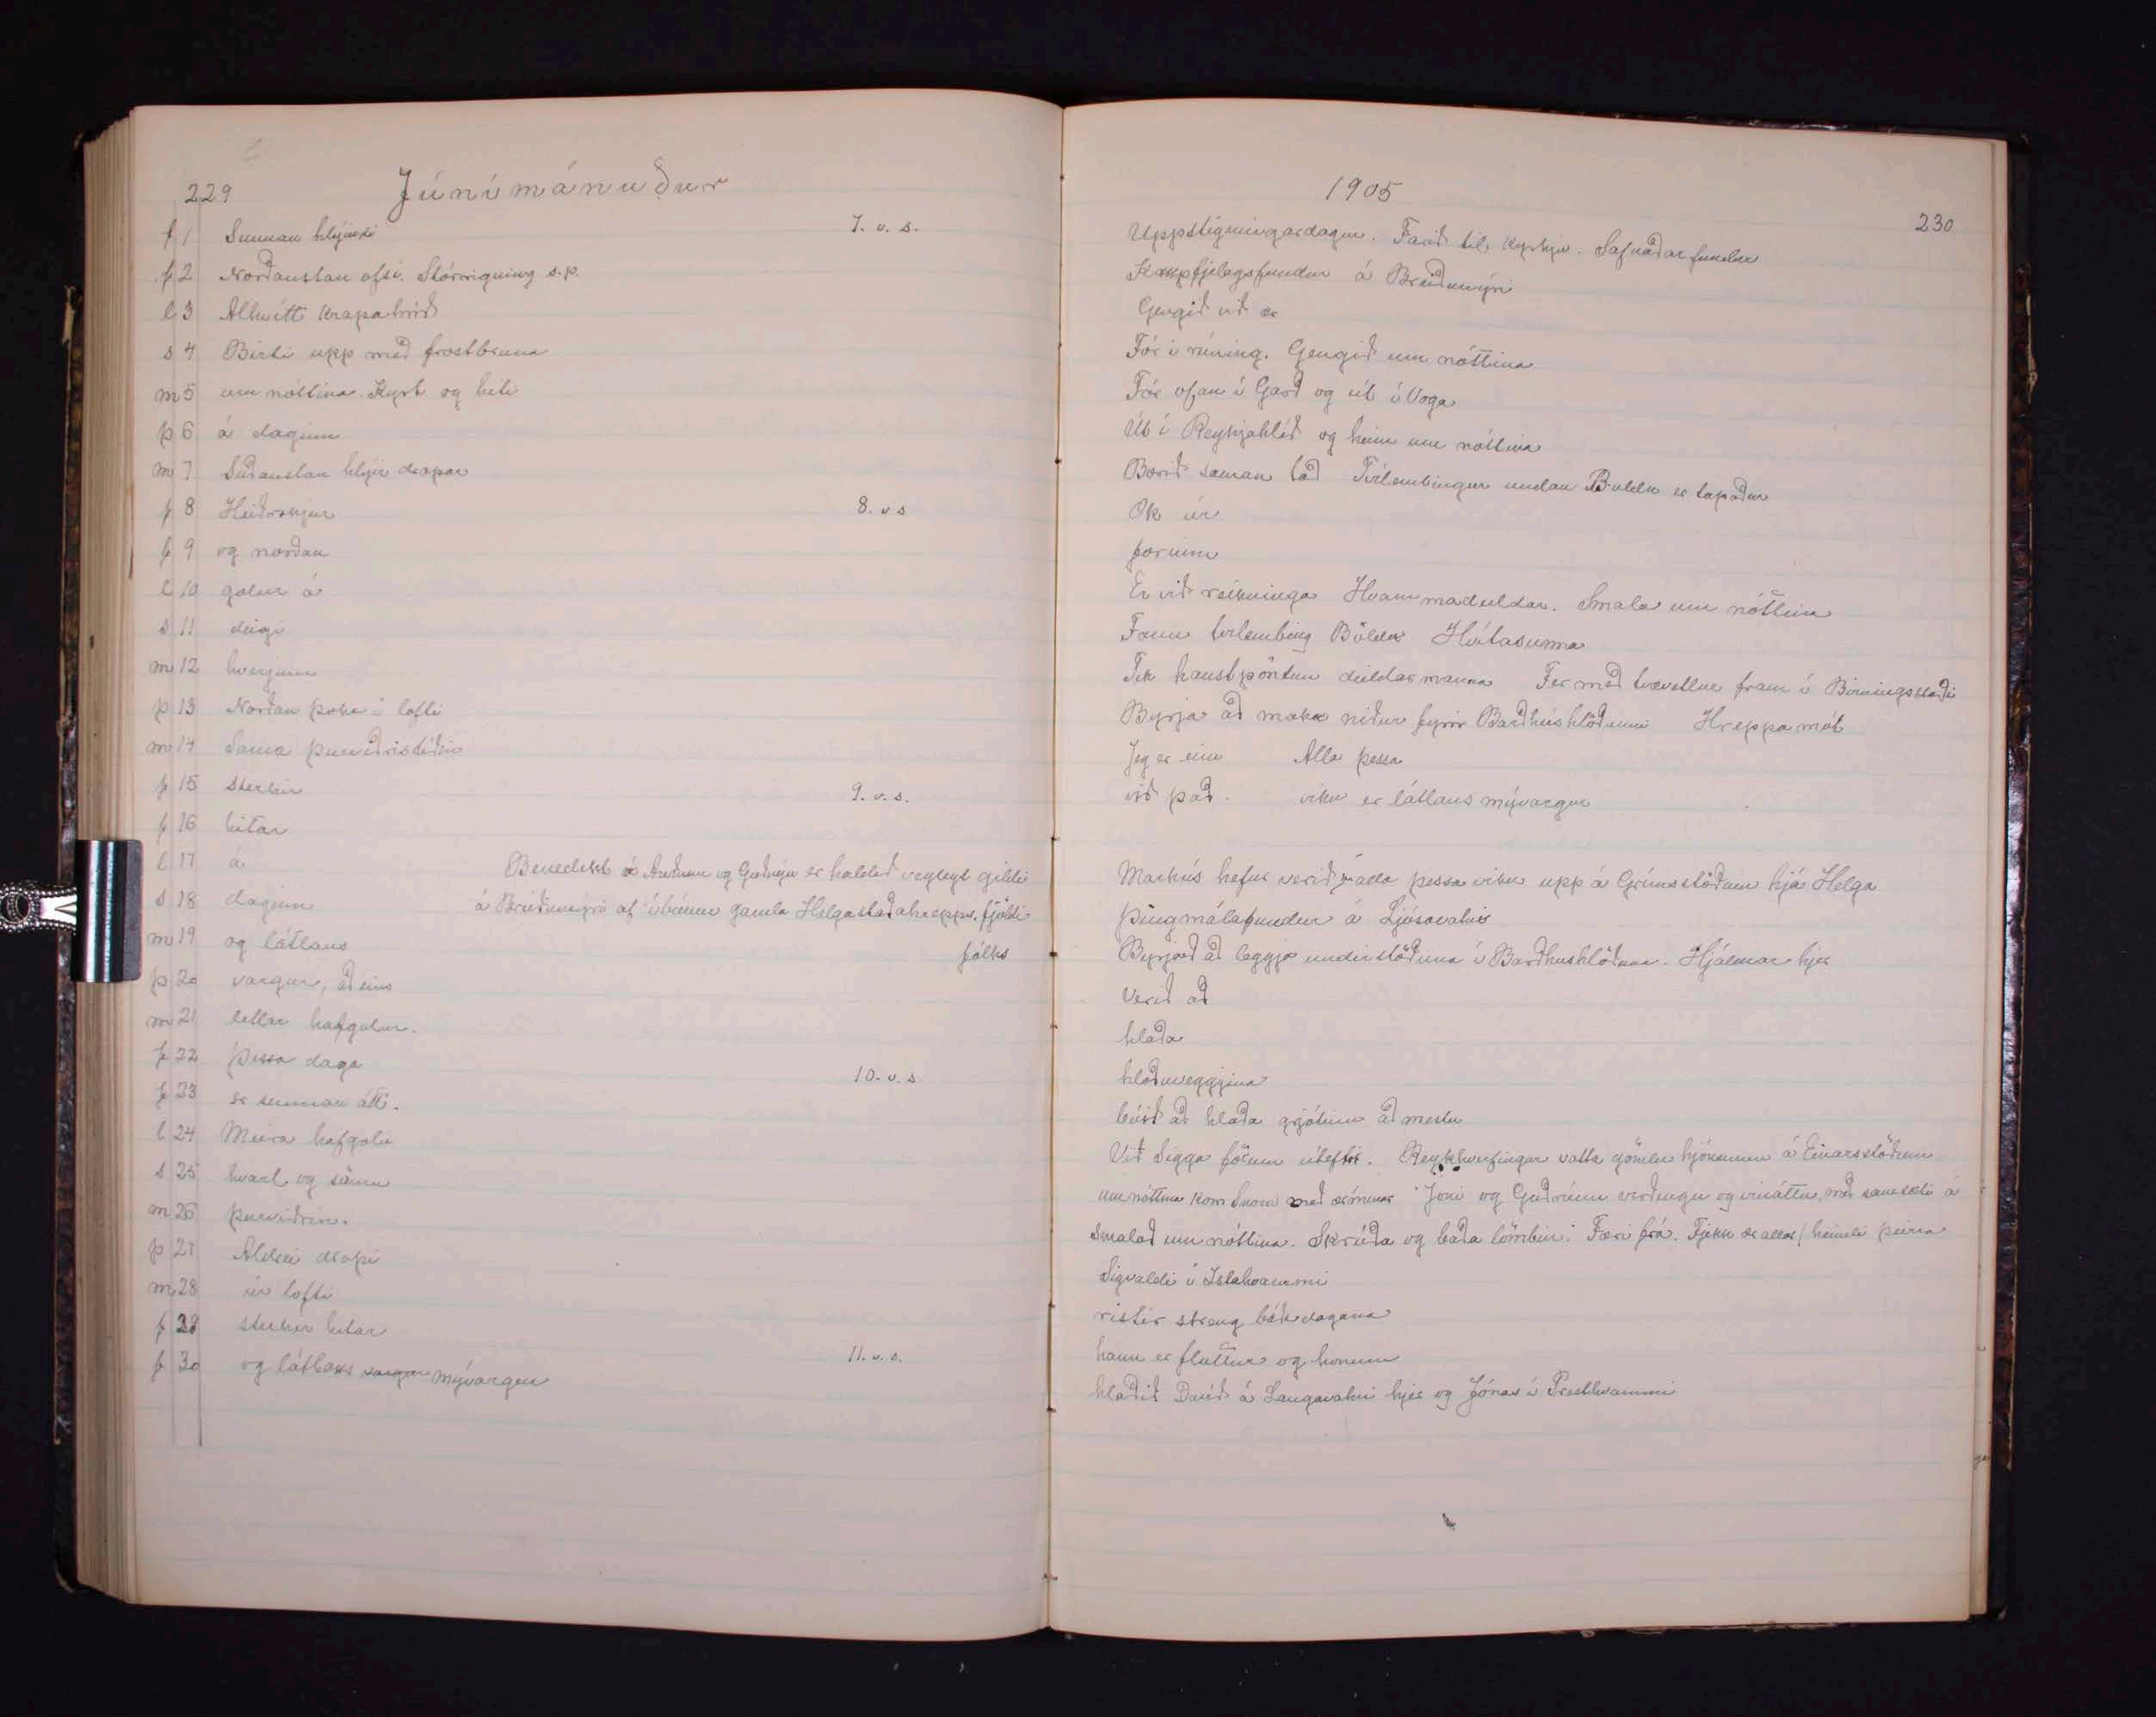 229 Júnímánuður
f 1 Sunnan hlýindi 7. v. s.
f 2 Norðaustan ofsi. Stórrigning s.p.
l 3 Alhvítt krapahríð
s 4 Birti upp með frostbruna
m 5 um nóttina. Kyrt og hiti
þ 6 á daginn
m 7 Suðaustan hlýir dropar
f 8 Heiðrskjur 8. v s
f 9 og norðan
l 10 golur á
s 11 degi
m 12 hverjum
þ 13 Norðan þoka í lofti
m 14 Sama þurviðristíðin
f 15 sterkir 9. v. s.
f 16 hitar
l 17 á Benedikt á Auðnum og Guðnýu er haldið veglegt gildi
s 18 daginn á Breiðumýri af íbúum gamla Helgastaðahrepps. fjöldi
m 19 og látlaus fólks
þ 20 vargur, að eins
m 21 litlar hafgolur.
f 22 Þessa daga 10. v. s.
f 23 er sunnan átt.
l 24 Meira hafgola
s 25 hvasl og sömu
m 26 þurviðrin.
þ 27 Aldrei dropi
m 28 úr lofti
f 29 sterkir hitar
f 30 og látlaus vargur mývargur 11. v. s.
1905 230
Uppstigningardagur. Farið til kyrkju. Safnaðarfundur
Kaupfjelagsfundur á Breiðumýri
Gengið við ær
Fór í rúning. Gengið um nóttina
Fór ofan í Garð og út í Voga
Út í Reykjahlíð og heim um nóttina
Borið saman tað Tvílembingur undan Böldu er tapaður
Ók úr
forinni
Er við reikninga Hvammadeildar. Smala um nóttina
Fann tvílembing Böldu Hvítasunna
Tek haustpöntun deildarmanna Fer með tvævetlur fram í Birningsstaði
Byrja að moka niður fyrir Barðhúshlöðunni Hreppamót
Jeg er einn Alla þessa
við það. viku er látlaus mývargur
Markús hefur verið alla þessa viku upp á Grímsstöðum hjá Helga
Þingmálafundur á Ljósavatni
Byrjað að leggja undirstöðuna í Barðhushlöðuna. Hjálmar hjer
Verið að
hlaða
hlöðuveggina
búið að hlaða grjótinu að mestu
Við Sigga fórum úteftir. Reykhverfingar votta gömlu hjónunum á Einarsstöðum
um nóttina kom Snorri með ærnar Jóni og Guðrúnu virðingu og vináttu, með samsæti á
Smalað um nóttina. Skrúða og baða lömbin. Færi frá. Fjekk ær allar / heimili þeirra
Sigvaldi í Íslahvammi
ristir streng báða dagana
hann er fluttur og honum
hlaðið Davíð á Langavatni hjer og Jónas í Presthvammi